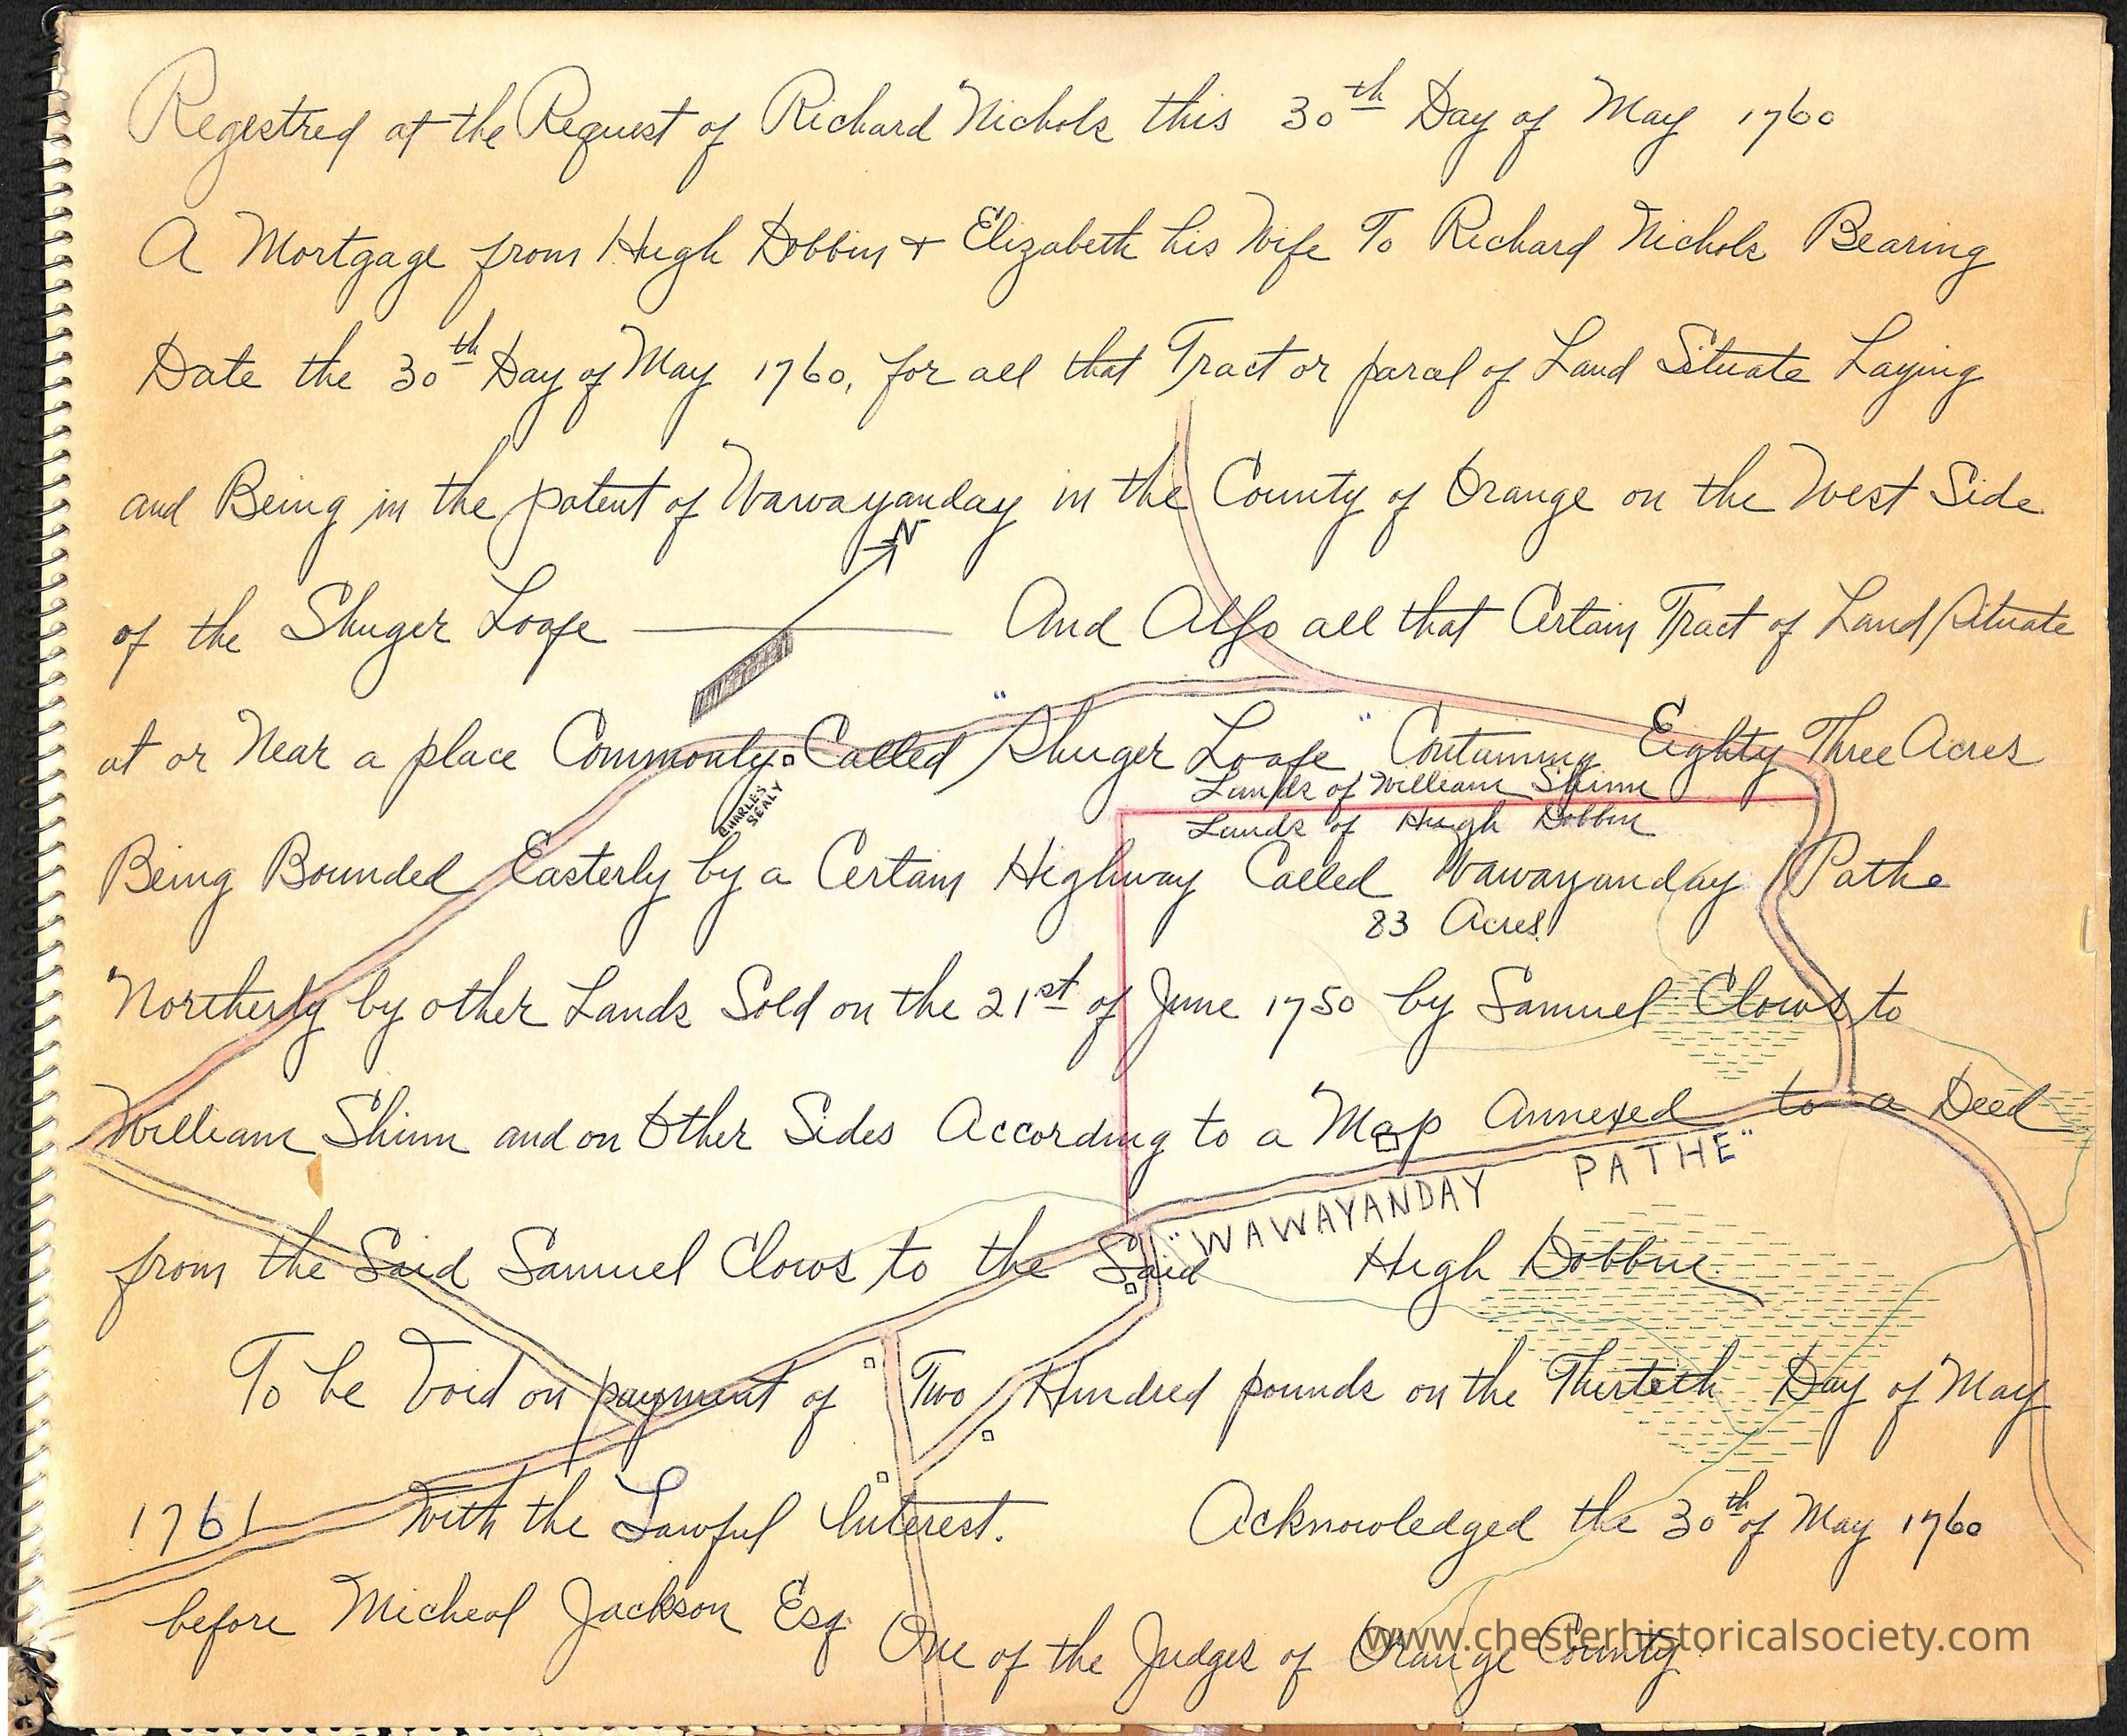 Regestred at the Request of Richard Nichols this 30th Day of May 1760
A Mortgage from Hugh Dobbin + Elizabeth his Wife To Richard Nichols Bearing
Date the 30th Day of May 1760, for all that Tract or parcel of Land Situate Laying
and Being in the patent of Wawayanday in the County of Orange on the West Side
N
of the Shuger Loafe And Also all that Certain Tract of Land Situate
at or Near a place Commonly Called "Shuger Loafe" Containing Eighty Three Acres
CHARLES SEALY
Lands of William Shinn
Lands of Hugh Dobbin
Being Bounded Easterly by a Certain Highway Called Wawayanday Pathe
83 Acres
Northerly by other Lands Sold on the 21st of June 1750 by Samuel Clows to
William Shinn and on Other Sides According to a Map Annexed to a Deed
"WAWAYANDAY PATHE"
from the Said Samuel Clows to the Said Hugh Dobbin.
To be Void on payment of Two Hundred pounds on the Thirteth Day of May
1761 With the Lawful Interest. Acknowledged the 30th of May 1760
before Micheal Jackson Esq. One of the Judges of Orange County.
www.chesterhistoricalsociety.com